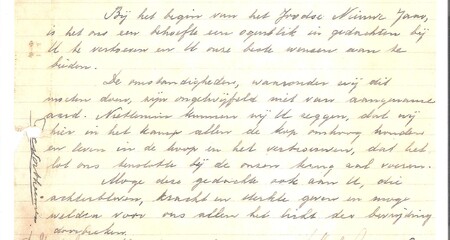 Bij het begin van het Joodse Nieuwe Jaar,
is het ons een behoefte een ogenblik in gedachten bij
U te vertoeven en U onze beste wensen aan te
bieden.
De omstandigheden, waaronder wij dit
moeten doen, zijn ongetwijfeld niet van aangename
aard. Niettemin kunnen wij U zeggen, dat wij
hier in het kamp allen de kop omhoog houden
en leven in de hoop en het vertrouwen, dat het
lot ons tenslotte bij de onzen terug zal voeren.
Moge deze gedachte ook aan U, die
achterbleven, kracht en sterkte geven en moge
weldra voor ons allen het licht der bevrijding
doorbreken.